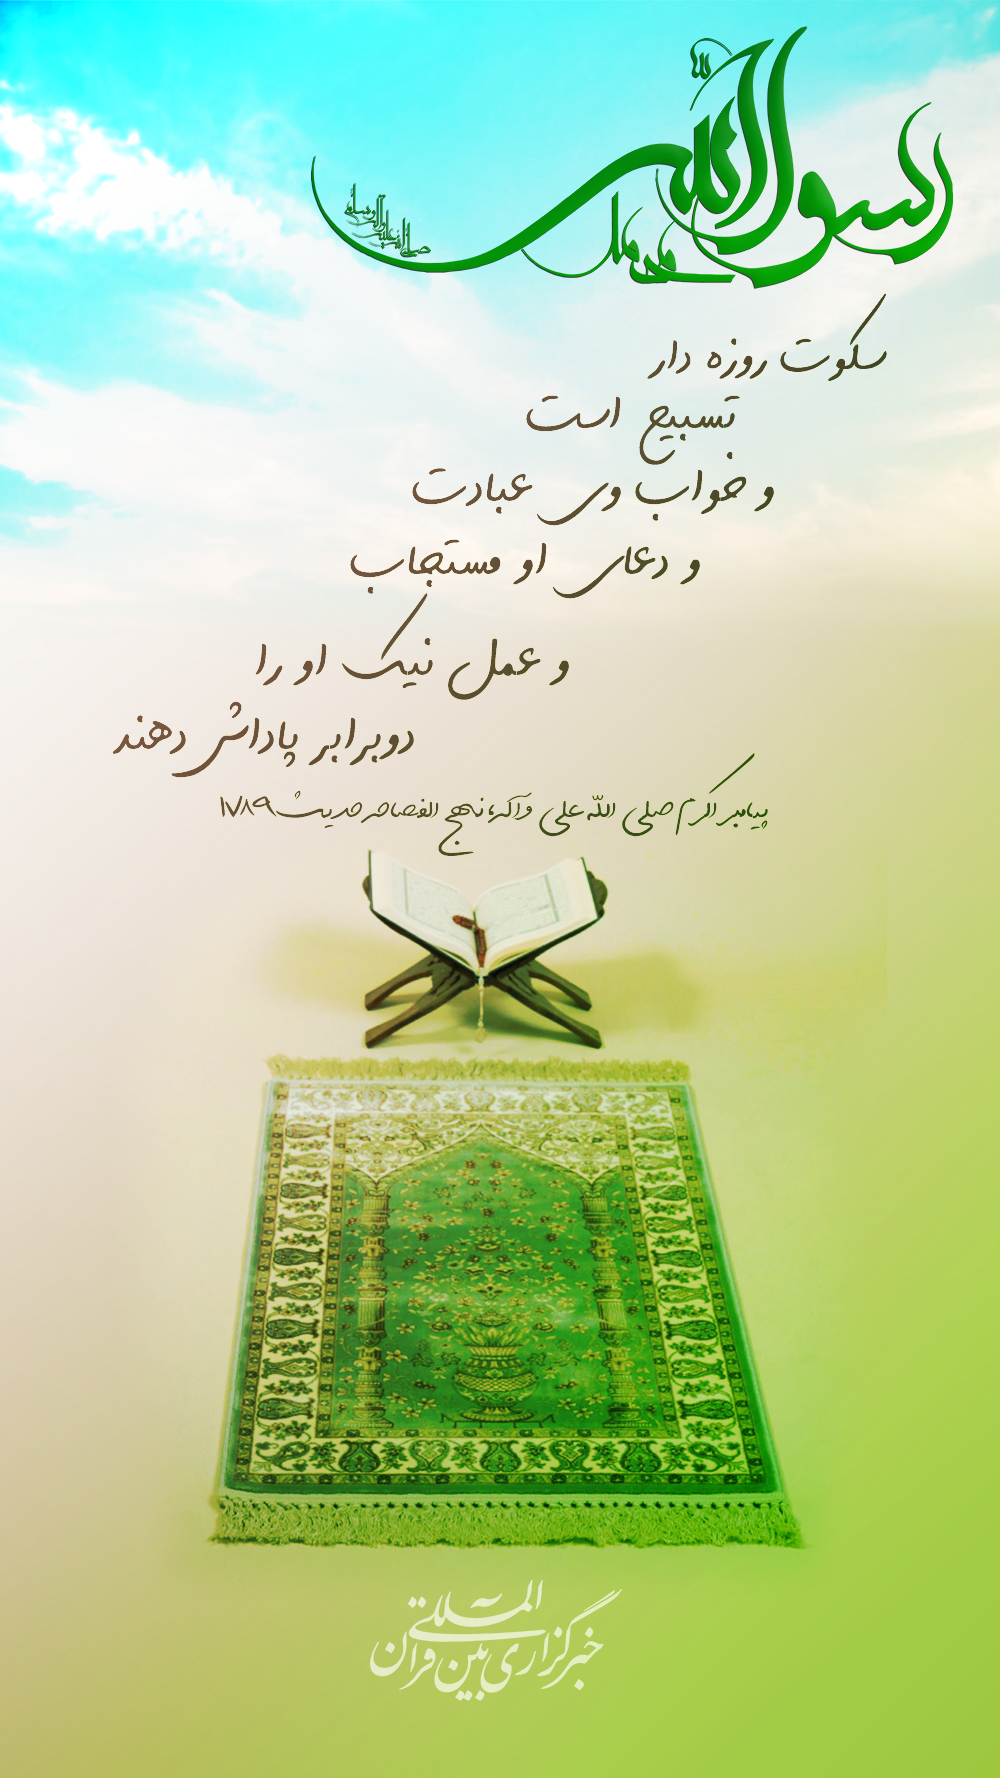 محمد رسول الله
صلی الله علیه و آله وسلم
سکوت روزه دار
تسبیح است
و خواب وی عبادت
و دعای او مستجاب
و عمل نیک او را
دوبرابر پاداش دهند
پیامبر اکرم صلی اللّه علی وآله، نهج الفصاحه حدیث ۱۷۸۹
خبرگزاری بین المللی قرآن